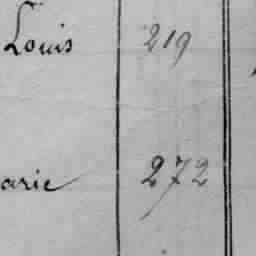 Louis 219
arie 272